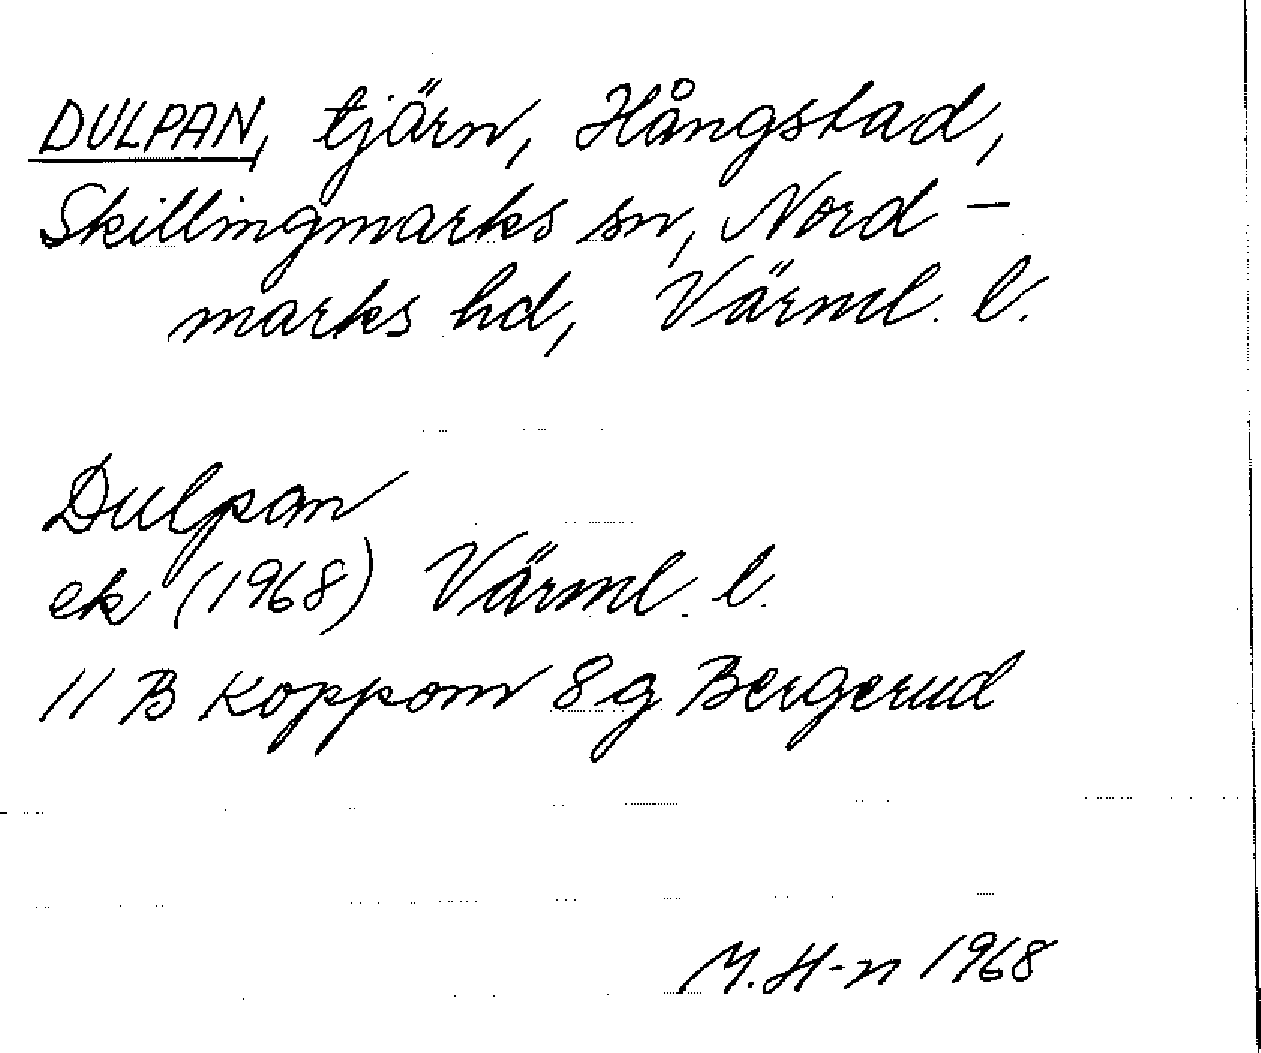 DULPAN, tjärn, Hångstad,
Skillingmarks sn, Nord-
marks hd, Värml. l.
Dulpan
ek (1968) Värml. l.
11 B Koppom 8g Bergerud
M. H-n 1968